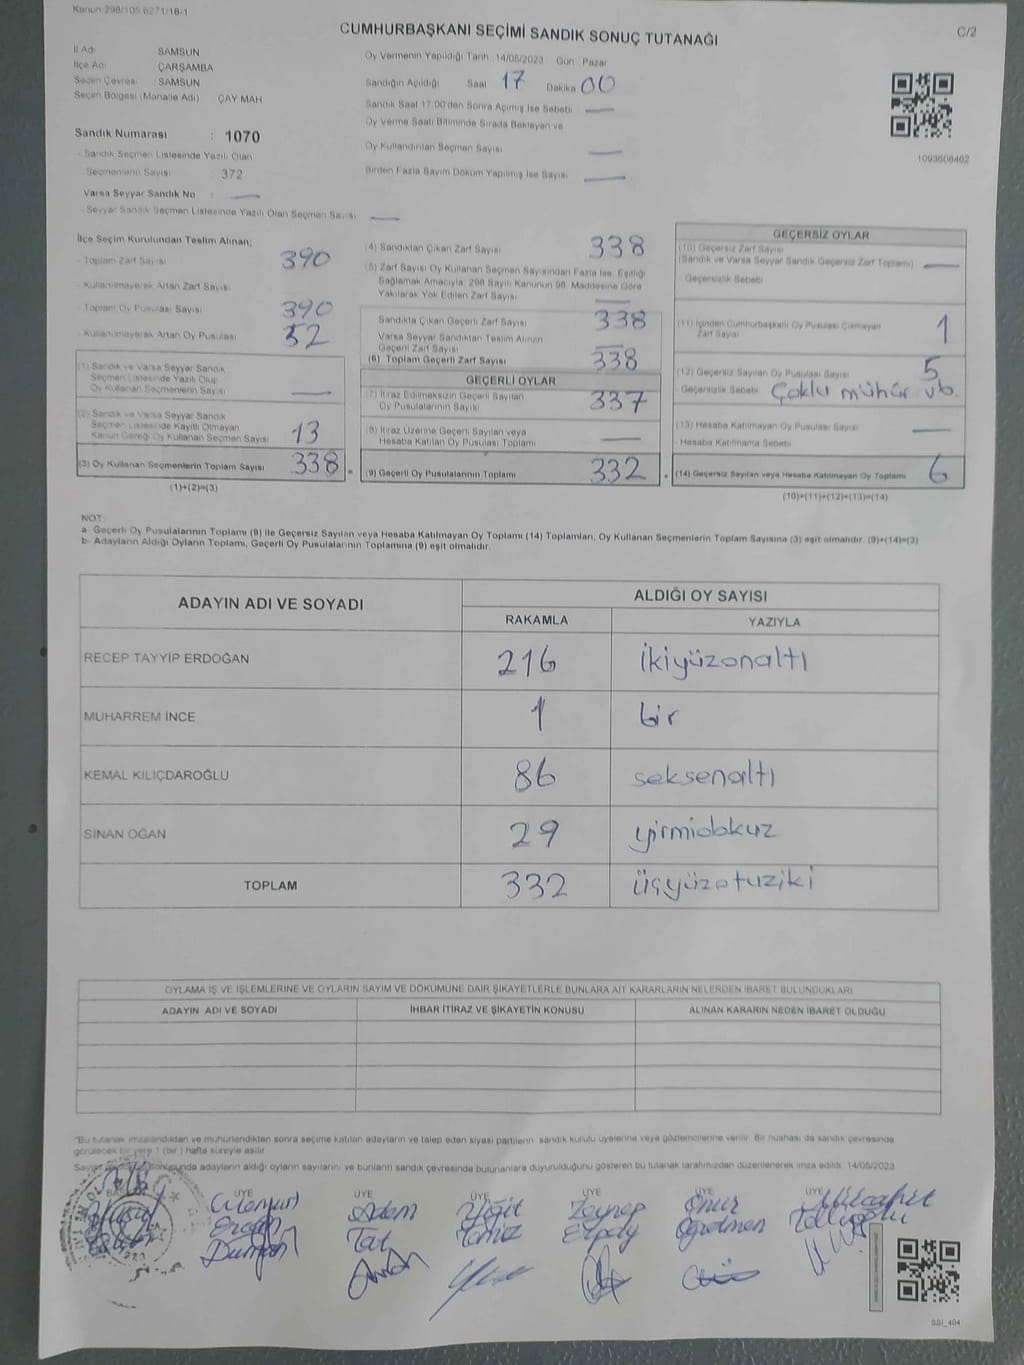 Kanun:298/105 6271/18-1
CUMHURBAŞKANI SEÇİMİ SANDIK SONUÇ TUTANAĞI
C/2
İl Adı : SAMSUN
İlçe Adı : ÇARŞAMBA
Seçim Çevresi : SAMSUN
Seçim Bölgesi (Mahalle Adı) ÇAY MAH
Sandık Numarası : 1070
- Sandık Seçmen Listesinde Yazılı Olan
Seçmenlerin Sayısı : 372
Varsa Seyyar Sandık No :
- Seyyar Sandık Seçmen Listesinde Yazılı Olan Seçmen Sayısı
Oy Vermenin Yapıldığı Tarih 14/05/2023 Gün Pazar
Sandığın Açıldığı Saat 17 Dakika 00
Sandık Saat 17:00'den Sonra Açılmış İse Sebebi
Oy Verme Saati Bitiminde Sırada Bekleyen ve
Oy Kullandırılan Seçmen Sayısı
Birden Fazla Sayım Döküm Yapılmış İse Sayısı
1093608462
İlçe Seçim Kurulundan Teslim Alınan;
- Toplam Zarf Sayısı 390
- Kullanılmayarak Artan Zarf Sayısı
- Toplam Oy Pusulası Sayısı 390
- Kullanılmayarak Artan Oy Pusulası 52
(1) Sandık ve Varsa Seyyar Sandık
Seçmen Listesinde Yazılı Olup
Oy Kullanan Seçmenlerin Sayısı
(2) Sandık ve Varsa Seyyar Sandık
Seçmen Listesinde Kayıtlı Olmayan
Kanun Gereği Oy Kullanan Seçmen Sayısı 13
(3) Oy Kullanan Seçmenlerin Toplam Sayısı 338
(1)+(2)=(3)
(4) Sandıktan Çıkan Zarf Sayısı 338
(5) Zarf Sayısı Oy Kullanan Seçmen Sayısından Fazla İse, Eşitliği
Sağlamak Amacıyla, 298 Sayılı Kanunun 98. Maddesine Göre
Yakılarak Yok Edilen Zarf Sayısı
Sandıkta Çıkan Geçerli Zarf Sayısı 338
Varsa Seyyar Sandıktan Teslim Alınan
Geçerli Zarf Sayısı
(6) Toplam Geçerli Zarf Sayısı 338
GEÇERLİ OYLAR
(7) İtiraz Edilmeksizin Geçerli Sayılan
Oy Pusulalarının Sayısı 337
(8) İtiraz Üzerine Geçerli Sayılan veya
Hesaba Katılan Oy Pusulası Toplamı
(9) Geçerli Oy Pusulalarının Toplamı 332
GEÇERSİZ OYLAR
(10) Geçersiz Zarf Sayısı
(Sandık ve Varsa Seyyar Sandık Geçersiz Zarf Toplamı)
- Geçersizlik Sebebi
(11) İçinden Cumhurbaşkanı Oy Pusulası Çıkmayan
Zarf Sayısı 1
(12) Geçersiz Sayılan Oy Pusulası Sayısı 5
Geçersizlik Sebebi Çoklu mühür vb.
(13) Hesaba Katılmayan Oy Pusulası Sayısı
- Hesaba Katılmama Sebebi
(14) Geçersiz Sayılan veya Hesaba Katılmayan Oy Toplamı 6
(10)+(11)+(12)+(13)=(14)
NOT:
a- Geçerli Oy Pusulalarının Toplamı (9) ile Geçersiz Sayılan veya Hesaba Katılmayan Oy Toplamı (14) Toplamları, Oy Kullanan Seçmenlerin Toplam Sayısına (3) eşit olmalıdır. (9)+(14)=(3)
b- Adayların Aldığı Oyların Toplamı, Geçerli Oy Pusulalarının Toplamına (9) eşit olmalıdır.
ADAYIN ADI VE SOYADI
ALDIĞI OY SAYISI
RAKAMLA YAZIYLA
RECEP TAYYİP ERDOĞAN 216 ikiyüzonaltı
MUHARREM İNCE 1 bir
KEMAL KILIÇDAROĞLU 86 seksenaltı
SİNAN OĞAN 29 yirmidokuz
TOPLAM 332 üçyüzotuziki
OYLAMA İŞ VE İŞLEMLERİNE VE OYLARIN SAYIM VE DÖKÜMÜNE DAİR ŞİKAYETLERLE BUNLARA AİT KARARLARIN NELERDEN İBARET BULUNDUKLARI
ADAYIN ADI VE SOYADI İHBAR İTİRAZ VE ŞİKAYETİN KONUSU ALINAN KARARIN NEDEN İBARET OLDUĞU
"Bu tutanak imzalandıktan ve mühürlendikten sonra seçime katılan adayların ve talep eden siyasi partilerin sandık kurulu üyelerine veya gözlemcilerine verilir. Bir nüshası da sandık çevresinde
görülecek bir yere 1 (bir) hafta süreyle asılır.
sonunda adayların aldığı oyların sayılarını ve bunların sandık çevresinde bulunanlara duyurulduğunu gösteren bu tutanak tarafımızdan düzenlenerek imza edildi. 14/05/2023
ÜYE ÜYE ÜYE ÜYE ÜYE ÜYE
Adem Yiğit Zeynep Onur
Tat Temiz Öğretmen
Duman
SSİ_404